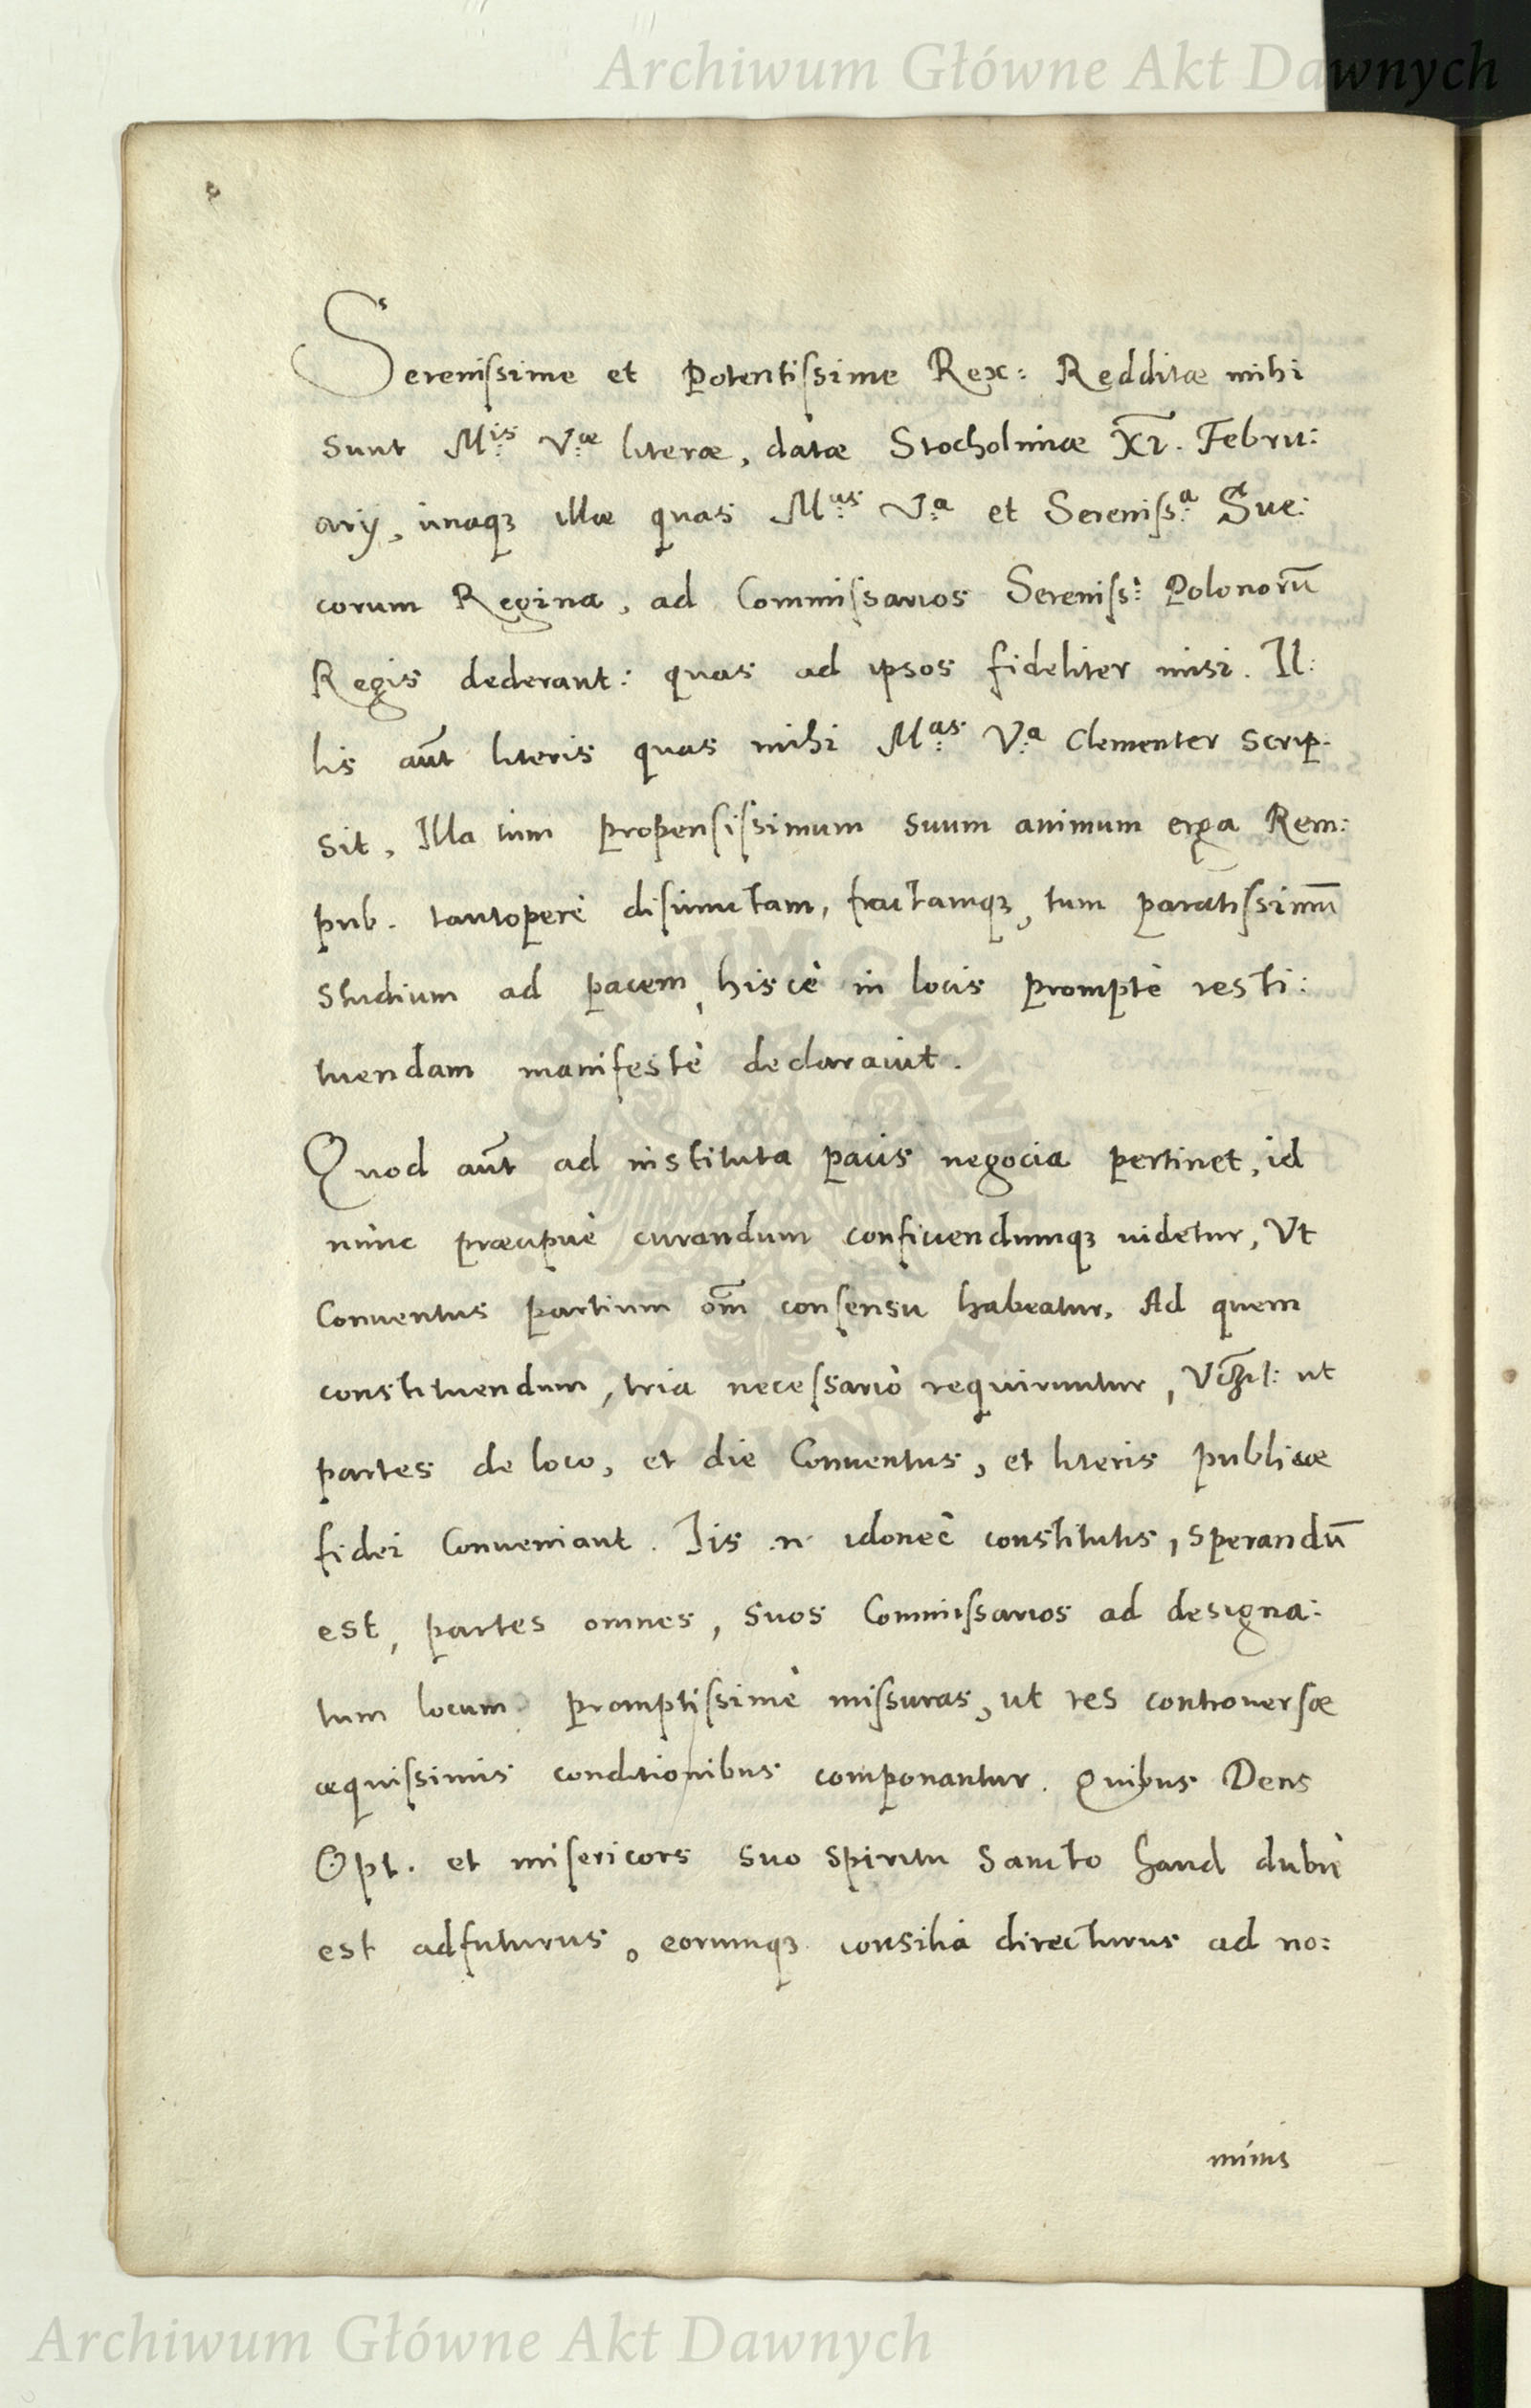 Archiwum Główne Akt Dawnych
Serenissime et Potentissime Rex: Redditæ mihi
sunt M.is V.æ literæ, datæ Stocholmiæ XI. Febru:
arij, unaq; illæ quas M.as V.a et Sereniss.a Sue:
corum Regina, ad Commissarios Sereniss: Polonorū
Regis dederant: quas ad ipsos fideliter misi. Il:
lis aūt literis quas mihi M.as V.a Clementer scrip:
sit, Illa tum propensissimum suum animum erga Rem:
pub. tantoperè disiunctam, fractamq; tum paratissimū
studium ad pacem, hiscè in locis promptè resti:
tuendam manifestè declarauit.
Quod aūt ad instituta pacis negocia pertinet, id
nunc præcipuè curandum conficiendumq; uidetur, Vt
Conuentus partium om̄ consensu habeatur. Ad quem
constituendum, tria necessariò requiruntur, ut
partes de loco, et die Conuentus, et literis publicæ
fidei Conueniant. Iis .n. idoneè constitutis, sperandū
est, partes omnes, suos Commissarios ad designa:
tum locum promptissimè missuras, ut res controuersæ
æquissimis conditionibus componantur. Quibus Deus
Opt. et misericors suo spiritu Sancto haud dubiè
est adfuturus, eorumq; consilia directurus ad no:
minis
ARCHIWUM GŁÓWNE AKT DAWNYCH
Archiwum Główne Akt Dawnych